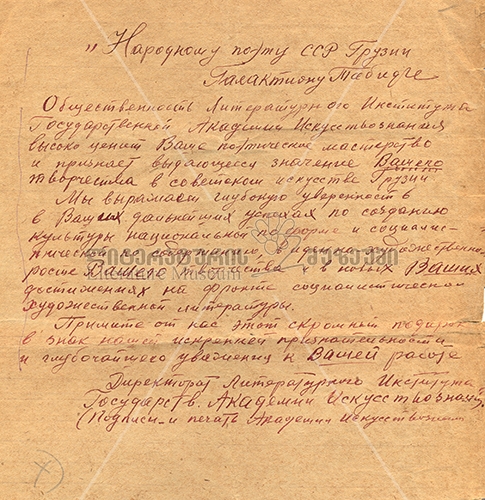 „Народному поэту ССР Грузии
Галактиону Табидзе
Общественность Литературного Института
Государственной Академии Искусствознания
высоко ценит Ваше поэтическое мастерство
и признает выдающееся значение Вашего
творчества в советском искусстве Грузии.
Мы выражаем глубокую уверенность
в Ваших дальнейших успехах по созданию
культуры национальной по форме и социалис-
тической по содержанию, в
росте Вашего и в новых Ваших
достижениях на фронте социалистической
художественной литературы.
Примите от нас этот скромный подарок
в знак нашей искренней признательности
и глубочайшего уважения к Вашей работе
Директорат Литературного Института
Государств. Академии Искусствознания.
(Подписи и печать Академии Искусствознан
ლიტერატურის მუზეუმი
Literature Museum